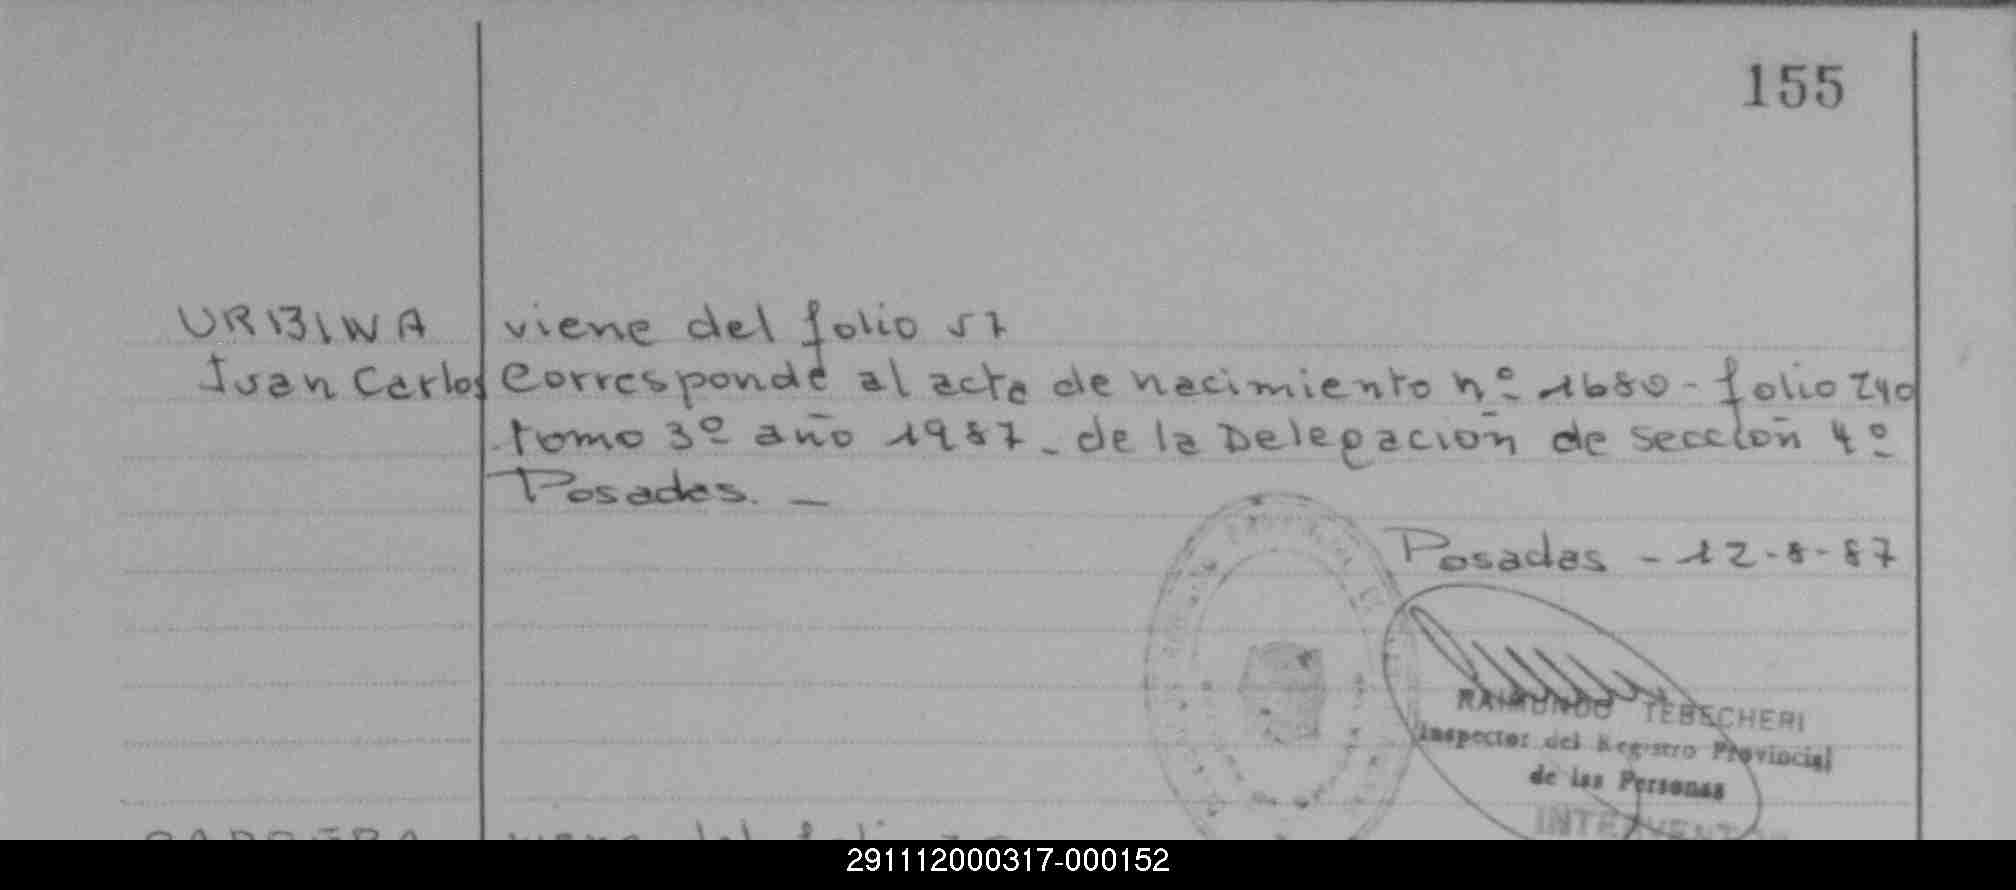 155
URBINA viene del folio 57
Juan Carlos Corresponde al acta de nacimiento nº 1680 - folio 240
tomo 3º año 1987 - de la Delegación de sección 4º
Posadas. -
Posadas - 12-8-87
RAIMUNDO TEBECHERI
Inspector del Registro Provincial
de las Personas
viene del folio
291112000317-000152